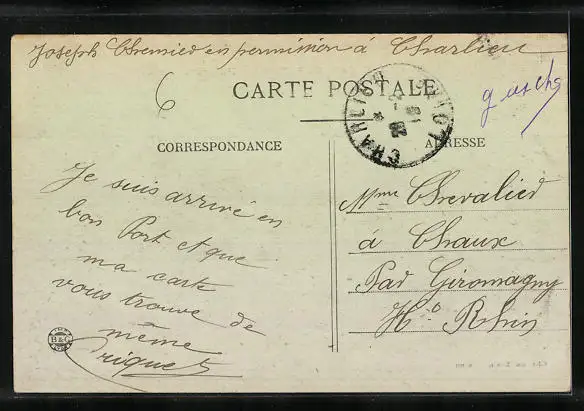 Joseph Chremied en permission à Charlieu
6
CARTE POSTALE
CHARLIEU LOIRE
CORRESPONDANCE
ADRESSE
Je suis arrivé en
bon Port et que
ma carte
vous trouve de
même
Friquet
B&G
Mme Chevalied
à Chaux
Pad Giromagny
Ht Rhin